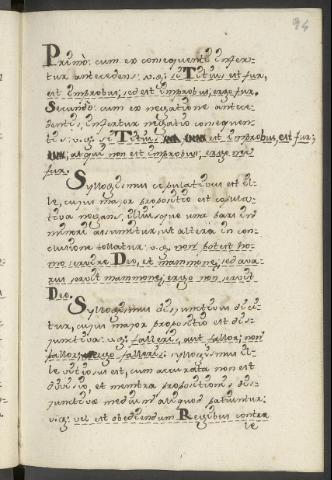 94
Primò: cum ex consequenti infer-
tur antecedens: v.g: si Titius est fur,
est improbus, sed est improbus, ergo fur.
Secundò: cum ex negatione antece-
dentis, infertur negatio consequen-
tis: v.g: si Titius est improbus, est fur;
atqui non est improbus, ergo nec
fur.
Syllogismus copulativus est il-
le, cujus major propositio est copula-
tiva negans, illiusque una pars in
minore assumitur, ut altera in con-
clusione tollatur: v.g: non potest ho-
mo servire Deo, et mammonae; sed ava-
rus servit mammonae; ergo non servit
Deo.
Syllogismus disjunctivus dici-
tur, cujus major propositio est dis-
junctiva: v.g: falleris, aut fallor; non
fallor; ergo falleris. syllogismus il-
le vitiosus est, cum accurata non est
divisio, et membra propositionis dis-
junctivae medium aliquod patiuntur:
v.g: vel est obediendum Regibus contra
le